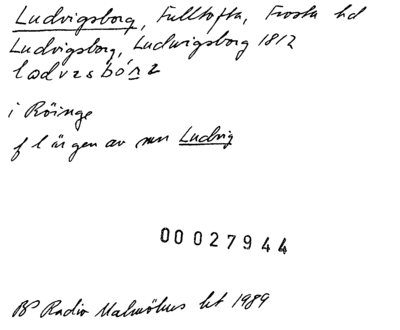 Ludvigsborg, Fulltofta, Frosta hd
Ludvigsborg, Ludwigsborg 1812
i Röinge
f l är gen av mn Ludvig
00027944
Radio Malmöhus 1989